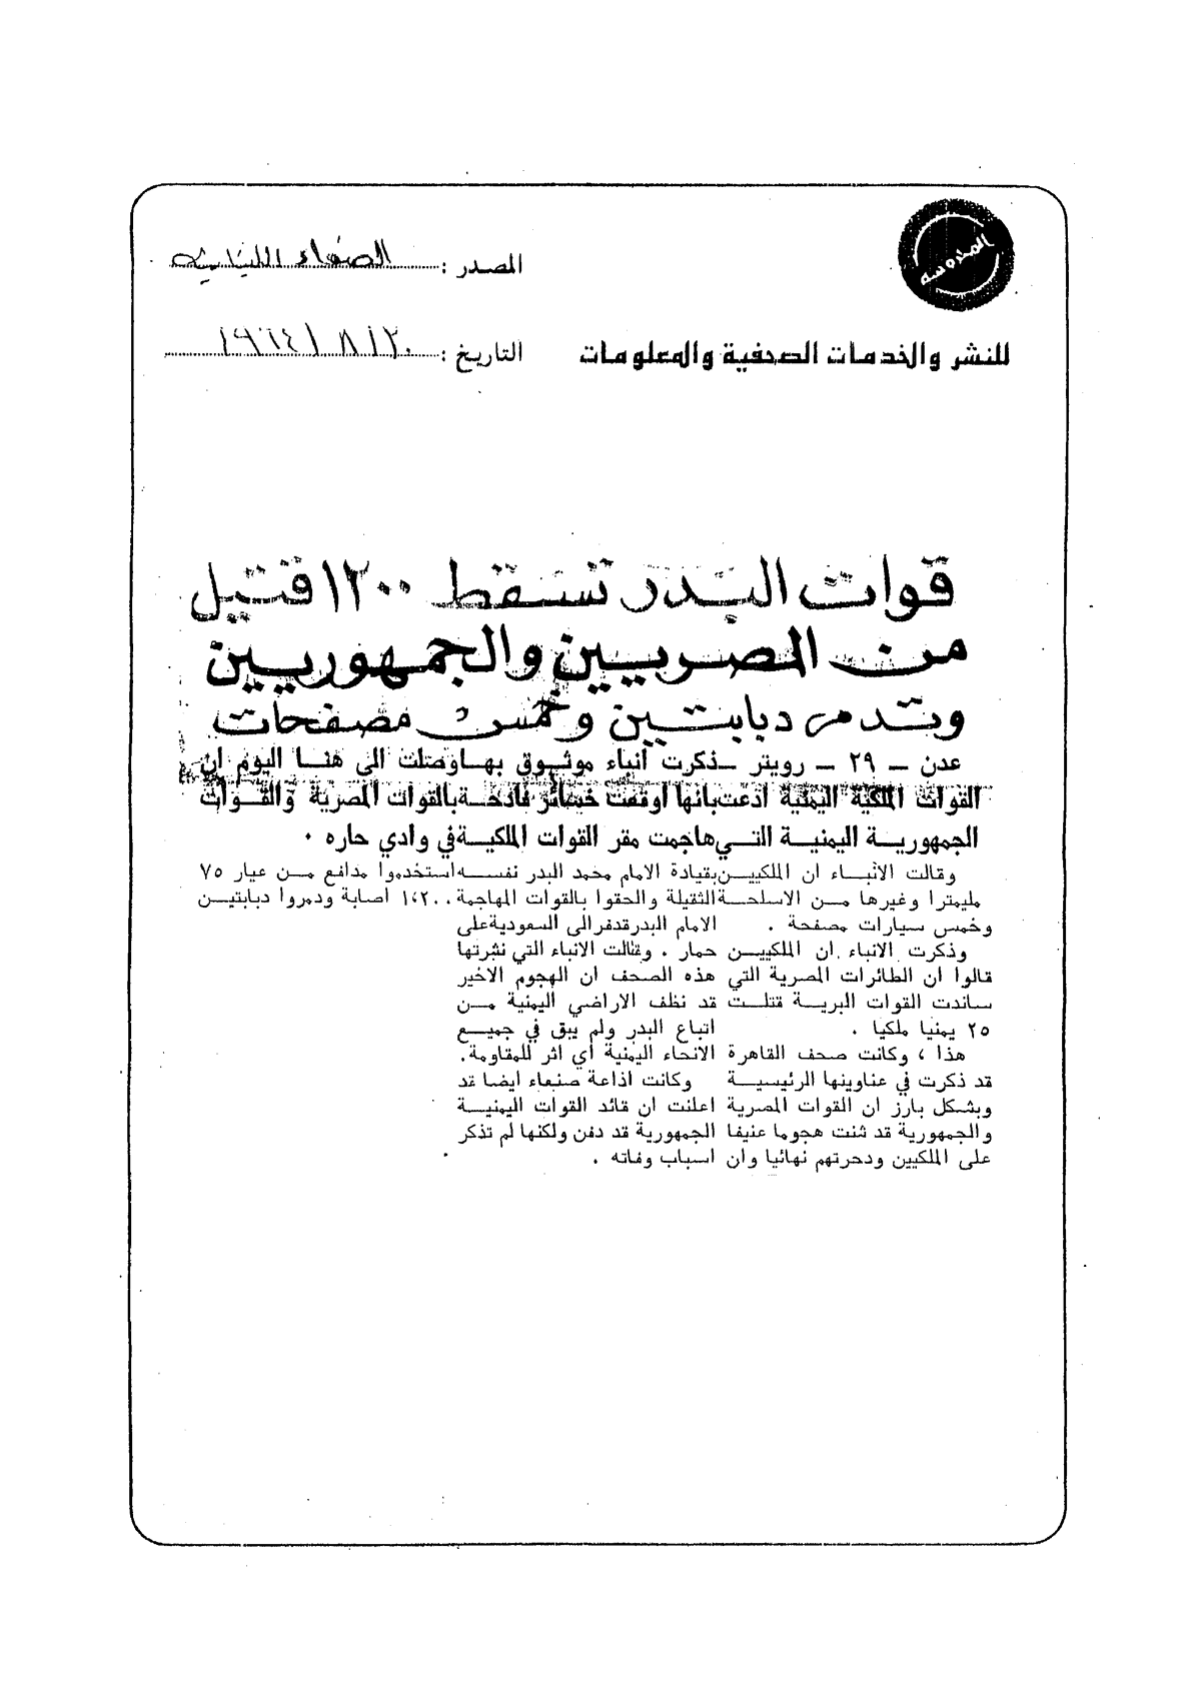 المدروسة
المصدر : الصفاء اللبنانية
للنشر والخدمات الصحفية والمعلومات
التاريخ : ٢٠ / ٨ / ١٩٦٤
قوات البدر تسقط ١٢٠٠ قتيل
من المصريين والجمهوريين
وتدمر دبابتين وخمس مصفحات
عدن ــ ٢٩ ــ رويتر ــ ذكرت أنباء موثوق بها وصلت الى هنا اليوم ان
القوات الملكية اليمنية ادعت بانها اوقعت خسائر فادحة بالقوات المصرية والقوات
الجمهورية اليمنية التي هاجمت مقر القوات الملكية في وادي حاره ٠
وقالت الأنباء ان الملكيين بقيادة الامام محمد البدر نفسه استخدموا مدافع من عيار ٧٥
مليمترا وغيرها من الاسلحة الثقيلة والحقوا بالقوات المهاجمة ١٤٢٠٠ اصابة ودمروا دبابتين
وخمس سيارات مصفحة .
وذكرت الانباء ان الملكيين
قالوا ان الطائرات المصرية التي
ساندت القوات البرية قتلت
٢٥ يمنيا ملكيا .
هذا ، وكانت صحف القاهرة
قد ذكرت في عناوينها الرئيسية
وبشكل بارز ان القوات المصرية
والجمهورية قد شنت هجوما عنيفا
على الملكيين ودحرتهم نهائيا وان
الامام البدر قد فر الى السعودية على
حمار . وقالت الانباء التي نشرتها
هذه الصحف ان الهجوم الاخير
قد نظف الاراضي اليمنية من
اتباع البدر ولم يبق في جميع
الانحاء اليمنية اي اثر للمقاومة.
وكانت اذاعة صنعاء ايضا قد
اعلنت ان قائد القوات اليمنية
الجمهورية قد دفن ولكنها لم تذكر
اسباب وفاته .